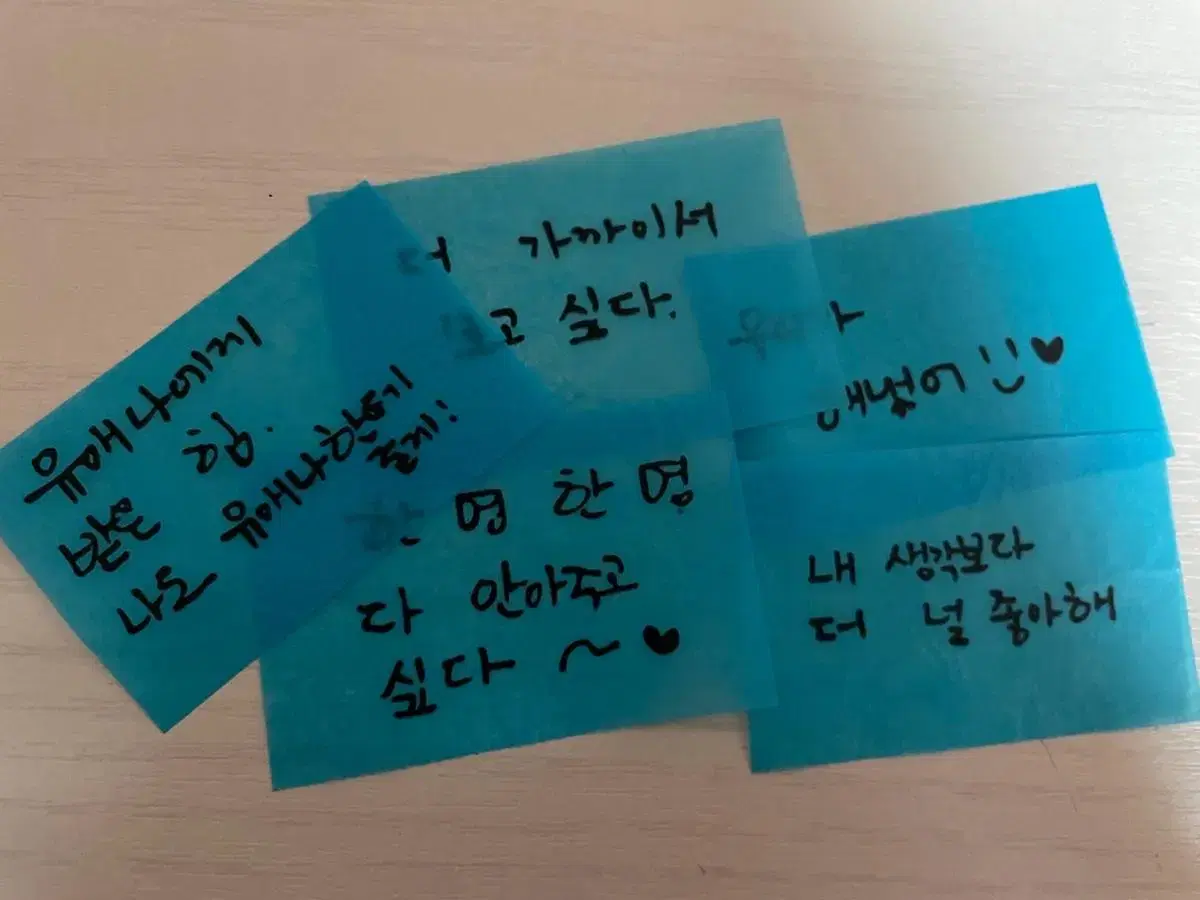 유애나에게
받은 힘.
나도 유애나한테
줄게!
더 가까이서
보고 싶다.
한 명 한 명
다 안아주고
싶다 ~ ♥
내 생각보다
더 널 좋아해